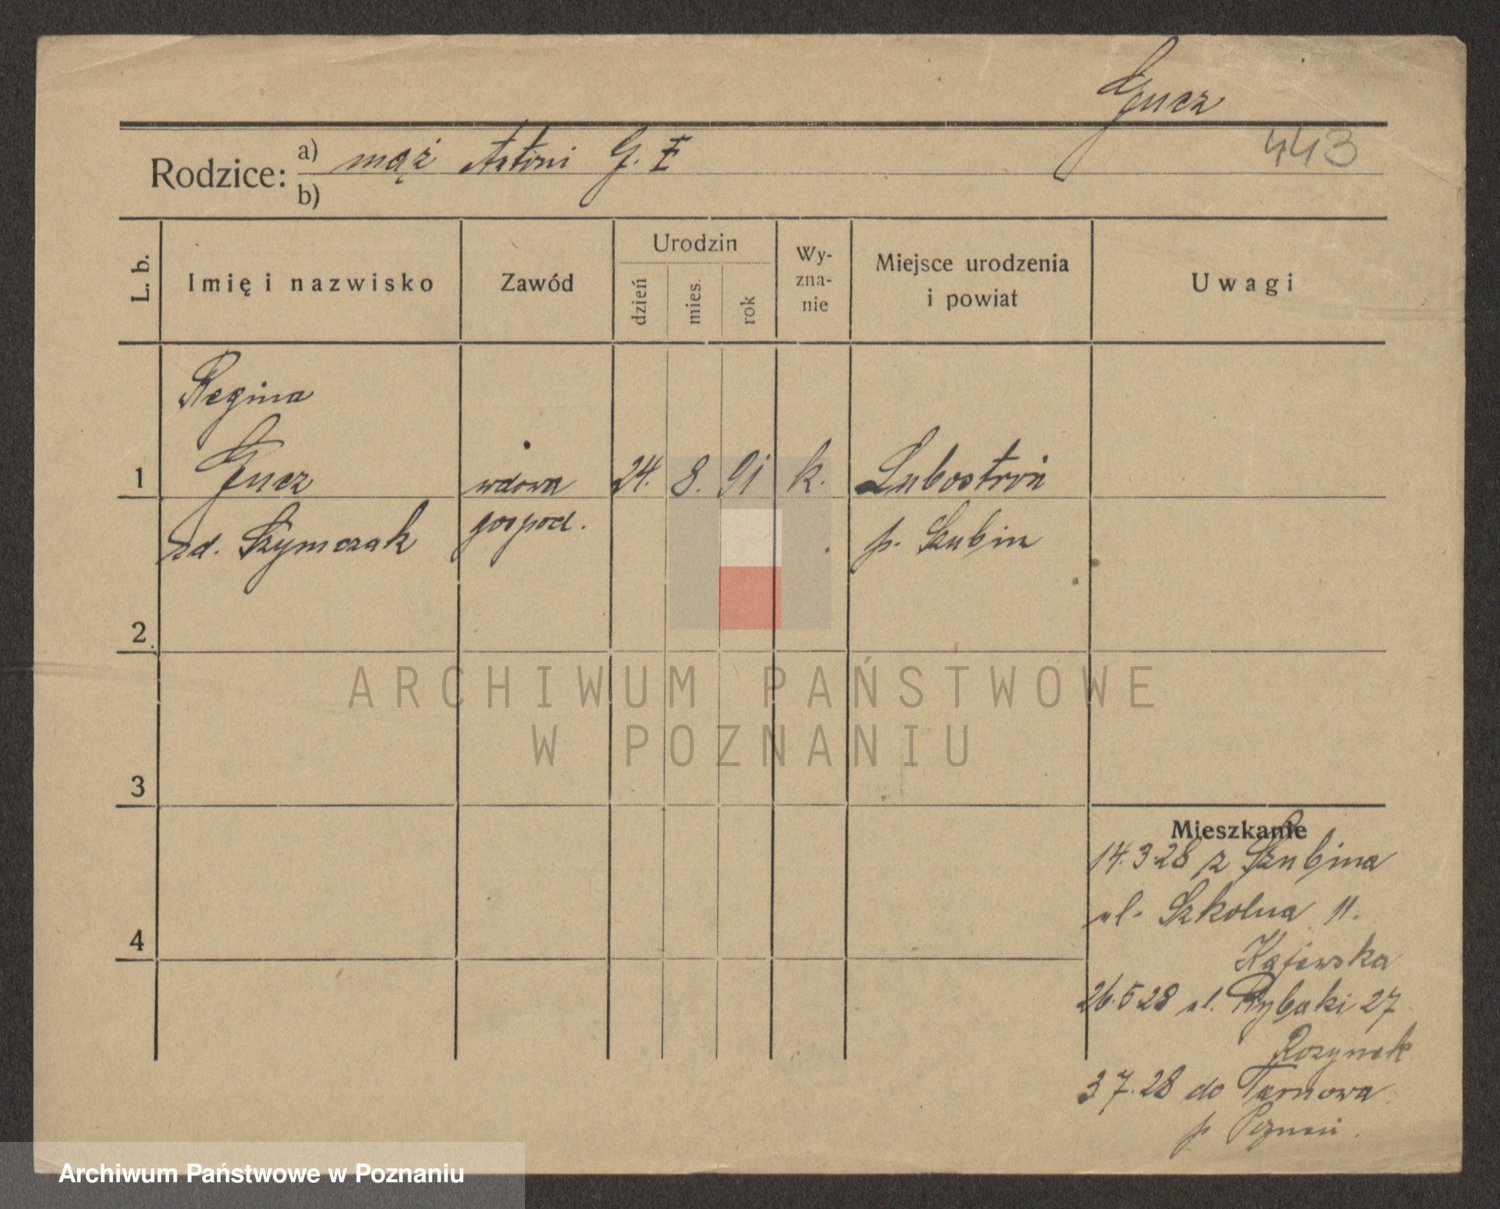 Gucz
443
Rodzice: a) mąż Antoni G. E
b)
L. b.
Imię i nazwisko
Zawód
Urodzin
dzień
mies.
rok
Wy-
zna-
nie
Miejsce urodzenia
i powiat
Uwagi
Regina
1 Gucz wdowa 24. 8. 91 k. Lubostroń
zd. Szymczak gospod. p. Szubin
2
ARCHIWUM PAŃSTWOWE
W POZNANIU
3
Mieszkanie
14.3.28 z Szubina
ul. Szkolna 11.
4
Kajewska
26.5.28 ul. Rybaki 27
Rozynek
3 7.28 do Tarnowa
p Poznań.
Archiwum Państwowe w Poznaniu